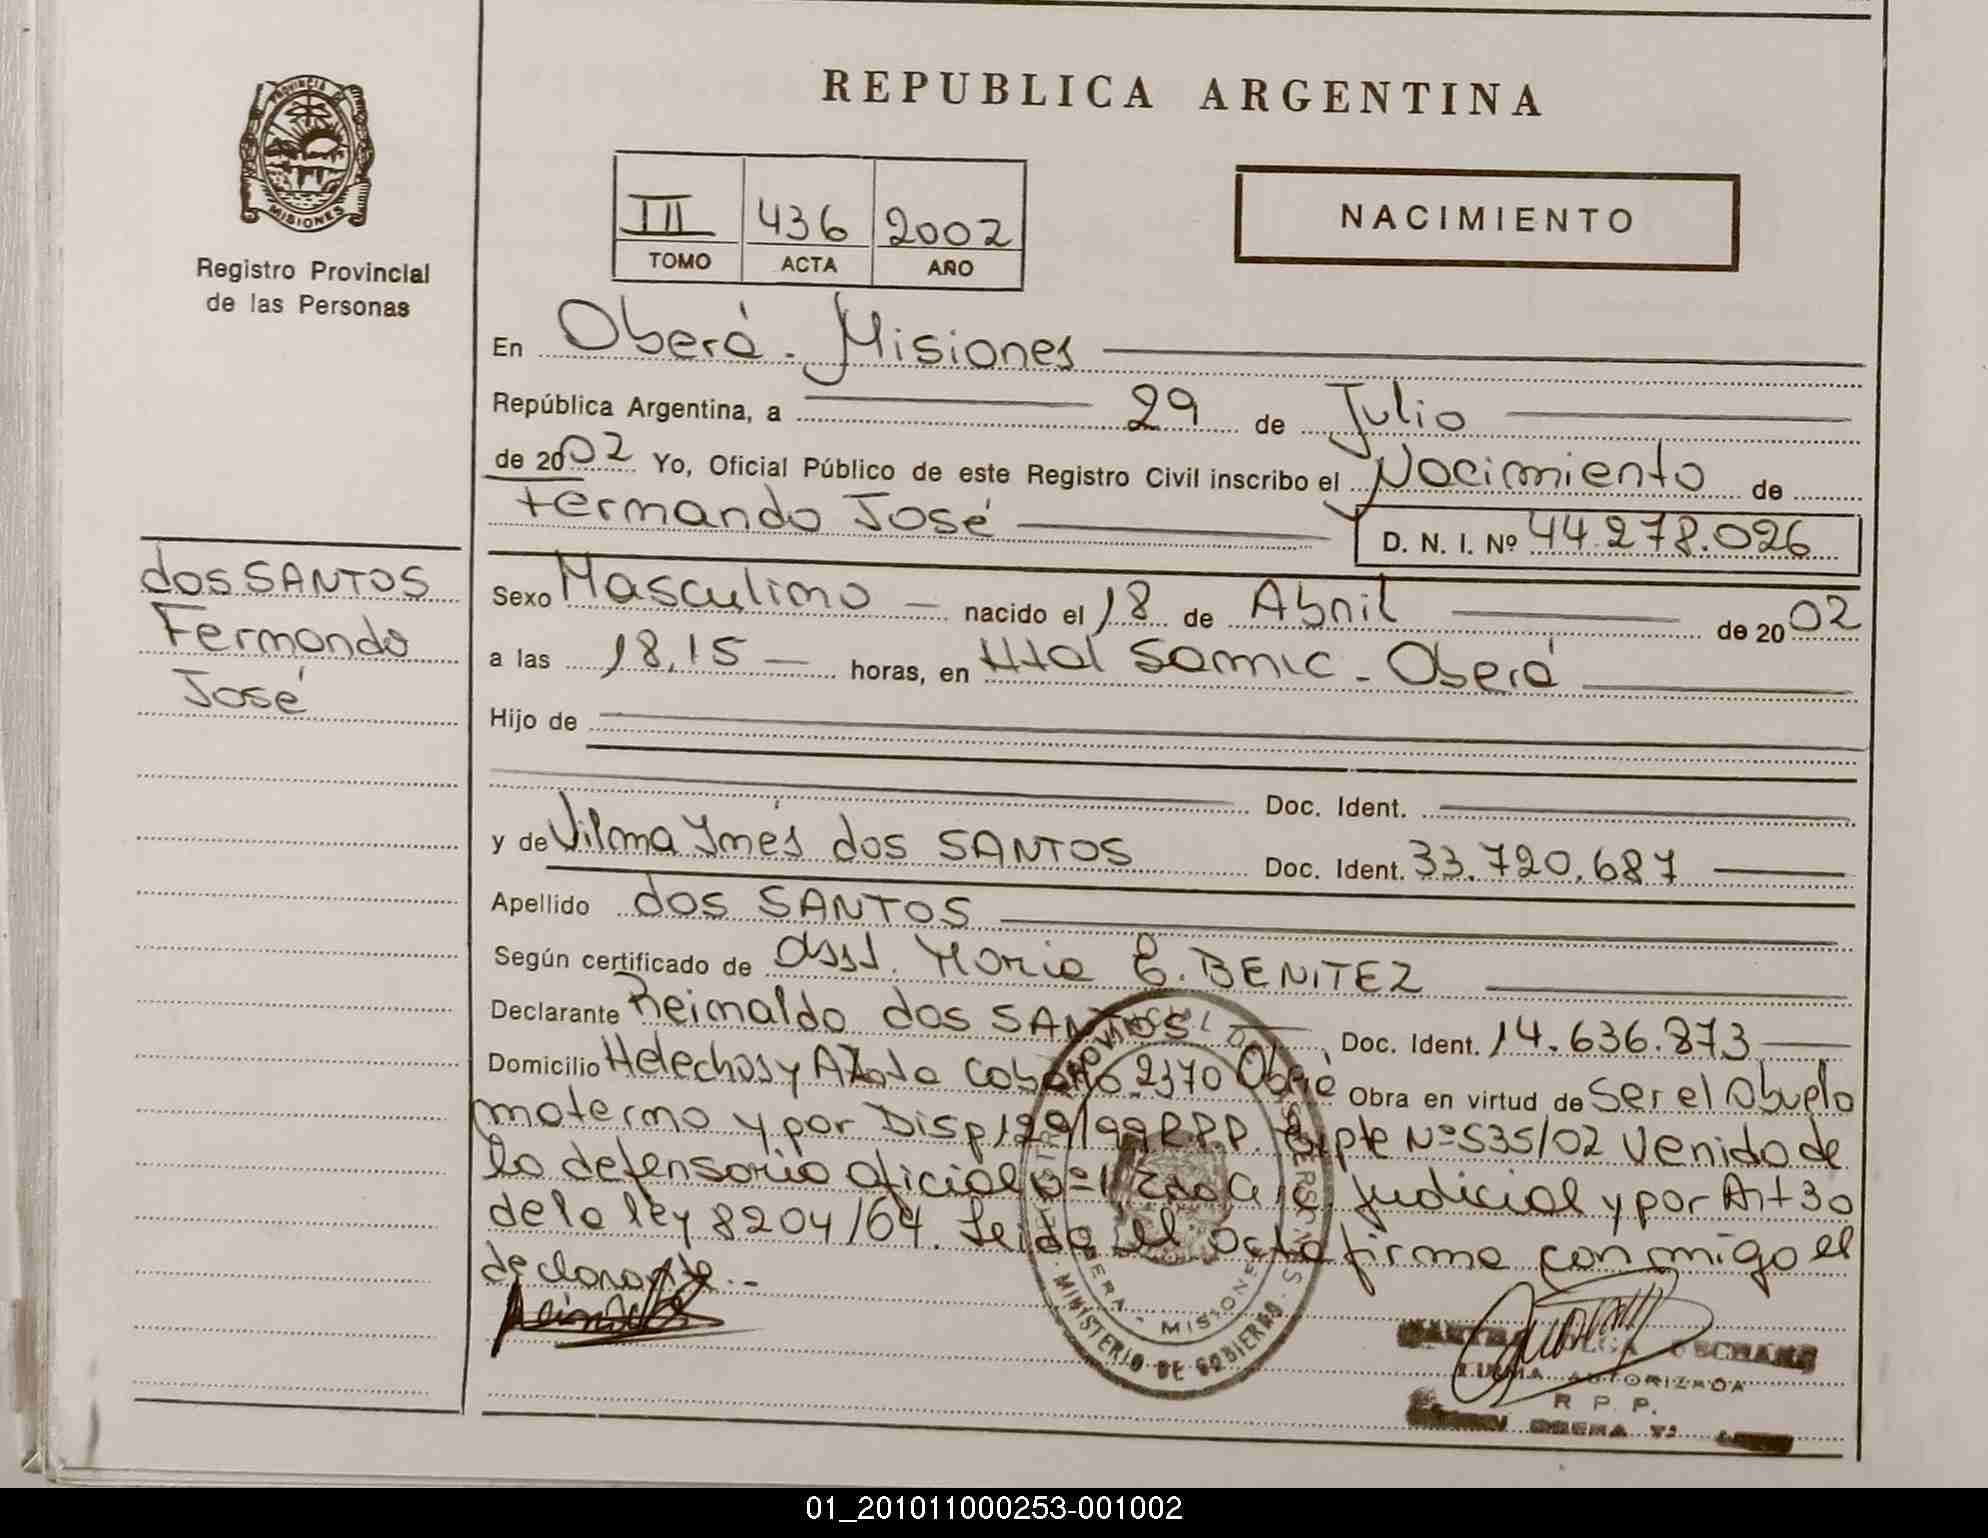 PROVINCIA DE
MISIONES
Registro Provincial
de las Personas
dos SANTOS
Fernando
José
REPUBLICA ARGENTINA
III 436 2002
TOMO ACTA AÑO
NACIMIENTO
En Oberá - Misiones
República Argentina, a 29 de Julio
de 2002 Yo, Oficial Público de este Registro Civil inscribo el Nacimiento de
Fernando José D. N. I. Nº 44.278.026
Sexo Masculino nacido el 18 de Abril de 2002
a las 18,15 horas, en Htal Samic - Oberá
Hijo de
Doc. Ident.
y de Vilma Ynés dos SANTOS Doc. Ident. 33.720.687
Apellido dos SANTOS
Según certificado de Obst. Maria E. BENITEZ
Declarante Reinaldo dos SANTOS Doc. Ident. 14.636.873
Domicilio Helechos y Oberá Obra en virtud de Ser el Abuelo
materno y por Disp 129/99 RPP. Expte Nº 535/02 Venido de
la defensoria oficial Nº 1 judicial y por Art 30
de la ley 8204/64. Leida el acta firma conmigo el
declarante.-
MINISTERIO DE GOBIERNO
MISIONES
FIRMA AUTORIZADA
R. P. P.
01_201011000253-001002